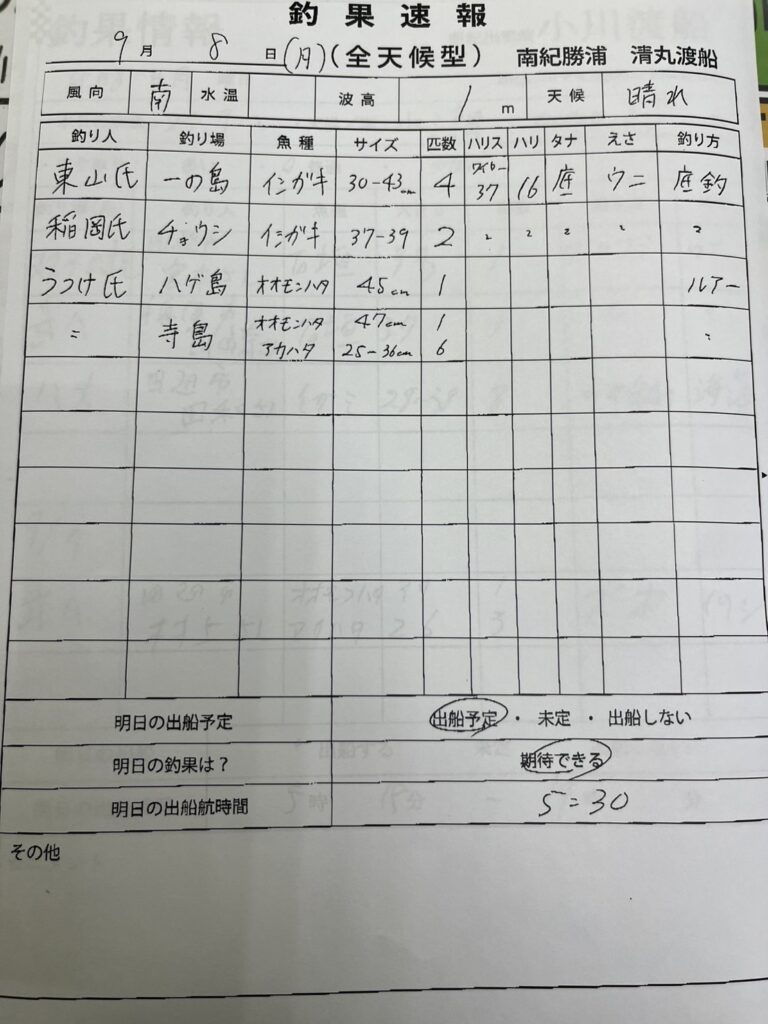 釣果速報
9月 8日(月)(全天候型) 南紀勝浦 清丸渡船
風向 南 水温 波高 1m 天候 晴れ
釣り人 釣り場 魚種 サイズ 匹数 ハリス ハリ タナ えさ 釣り方
東山氏 一の島 イシガキ 30-43cm 4 ワイヤー37 16 底 ウニ 底釣
稲岡氏 チョウシ イシガキ 37-39 2 〃 〃 〃 〃 〃
うつけ氏 ハゲ島 オオモンハタ 45cm 1 ルアー
〃 寺島 オオモンハタ 47cm 1 〃
アカハタ 25-36cm 6
明日の出船予定 出船予定・未定・出船しない
明日の釣果は? 期待できる
明日の出船航時間 5:30
その他